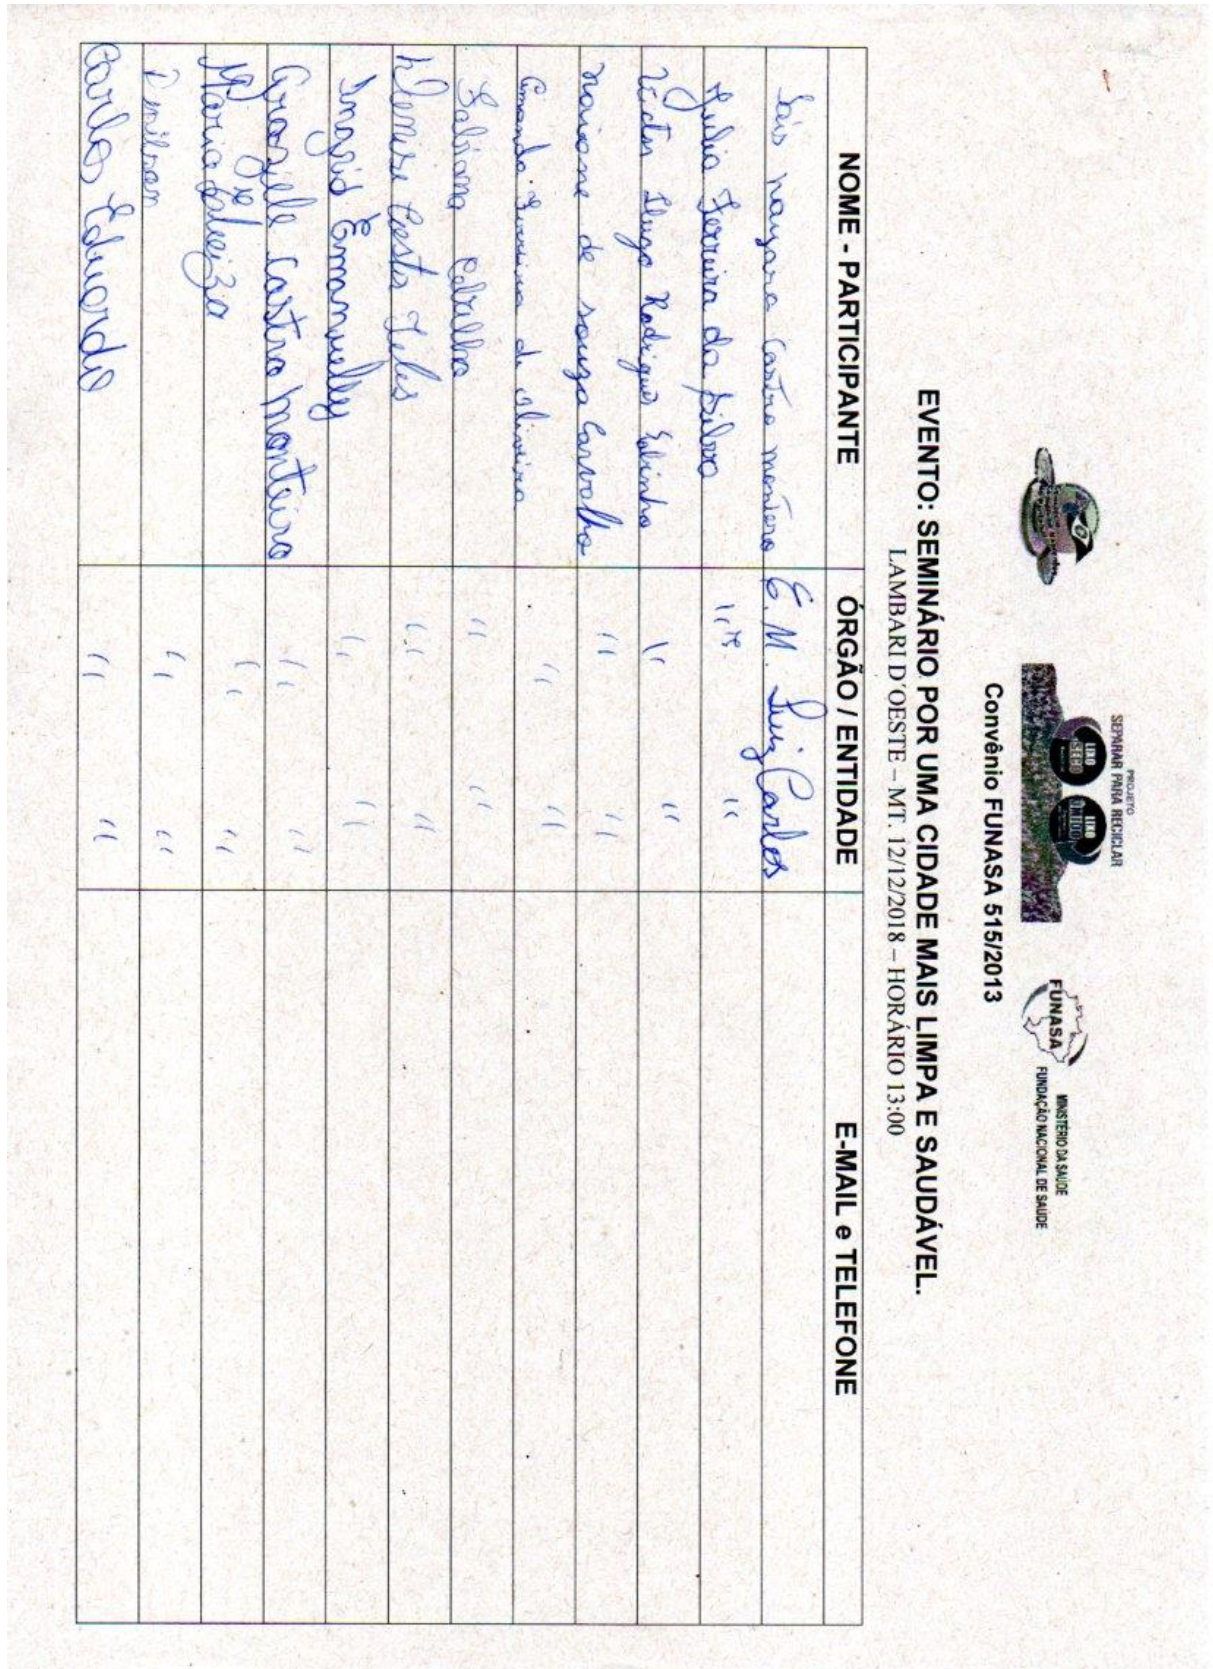 PROJETO
SEPARAR PARA RECICLAR
LIXO SECO
LIXO ÚMIDO
FUNASA
MINISTÉRIO DA SAÚDE
FUNDAÇÃO NACIONAL DE SAÚDE
Convênio FUNASA 515/2013
EVENTO: SEMINÁRIO POR UMA CIDADE MAIS LIMPA E SAUDÁVEL.
LAMBARI D'OESTE – MT. 12/12/2018 – HORÁRIO 13:00
NOME - PARTICIPANTE ÓRGÃO / ENTIDADE E-MAIL e TELEFONE
Laís nayara Castro montero E. M. Luiz Carlos
Julia Ferreira da Silva " "
Victor Hugo Rodrigues " "
naiane de souza Carvalho " "
Amanda de oliveira " "
Fabiana " "
Klenise Costa Teles " "
Ingrid Emmanuelly " "
Grazielle Castro Monteiro " "
Maria " "
" "
Carlos Eduardo " "